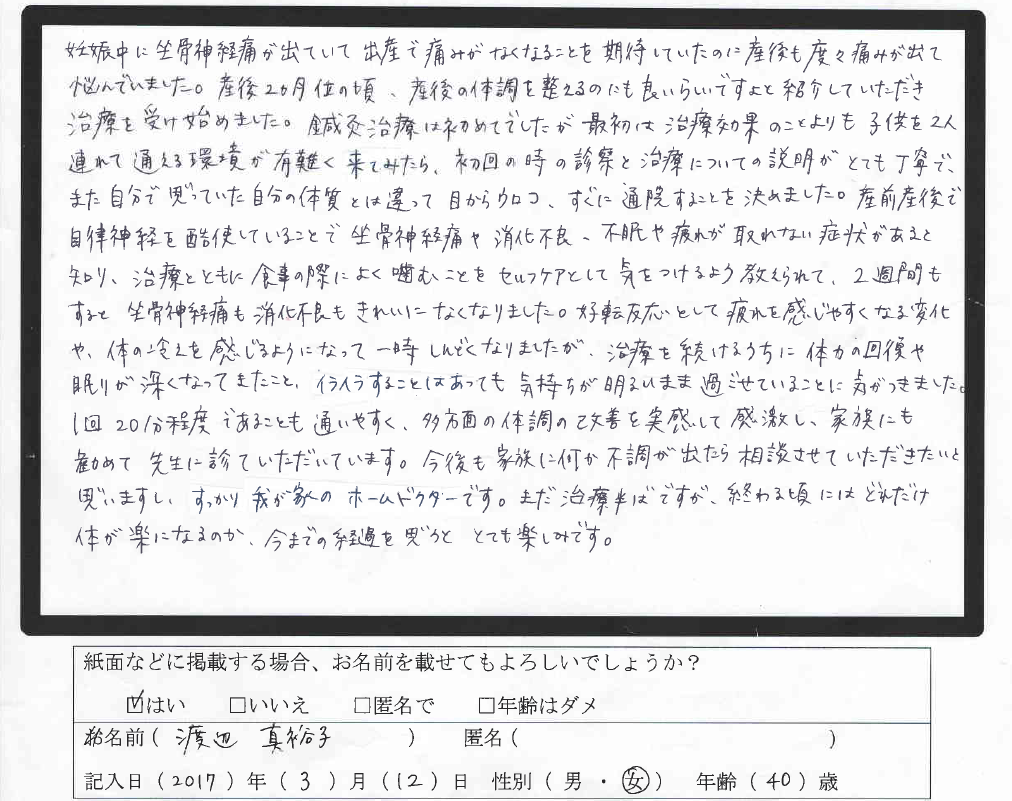 妊娠中に坐骨神経痛が出ていて出産で痛みがなくなることを期待していたのに産後も度々痛みが出て
悩んでいました。産後2カ月位の頃、産後の体調を整えるのにも良いらいですよと紹介していただき
治療を受け始めました。鍼灸治療は初めてでしたが最初は治療効果のことよりも子供を2人
連れて通える環境が有難く来てみたら、初回の時の診察と治療についての説明がとても丁寧で、
また自分で思っていた自分の体質とは違って目からウロコ、すぐに通院することを決めました。産前産後で
自律神経を酷使していることで坐骨神経痛や消化不良、不眠や疲れが取れない症状があると
知り、治療とともに食事の際によく噛むことをセルフケアとして気をつけるよう教えられて、2週間も
すると坐骨神経痛も消化不良もきれいになくなりました。好転反応として疲れを感じやすくなる変化
や、体の冷えを感じるようになって一時しんどくなりましたが、治療を続けるうちに体力の回復や
眠りが深くなってきたこと、イライラすることはあっても気持ちが明るいまま過ごせていることに気がつきました。
1回20分程度であることも通いやすく、多方面の体調の改善を実感して感激し、家族にも
勧めて先生に診ていただいています。今後も家族に何か不調が出たら相談させていただきたいと
思いますし、すっかり我が家のホームドクターです。まだ治療半ばですが、終わる頃にはどれだけ
体が楽になるのか、今までの経過を思うととても楽しみです。
紙面などに掲載する場合、お名前を載せてもよろしいでしょうか？
☑はい　□いいえ　□匿名で　□年齢はダメ
お名前（渡辺 真裕子）　匿名（　）
記入日（2017）年（3）月（12）日　性別（男・女）　年齢（40）歳